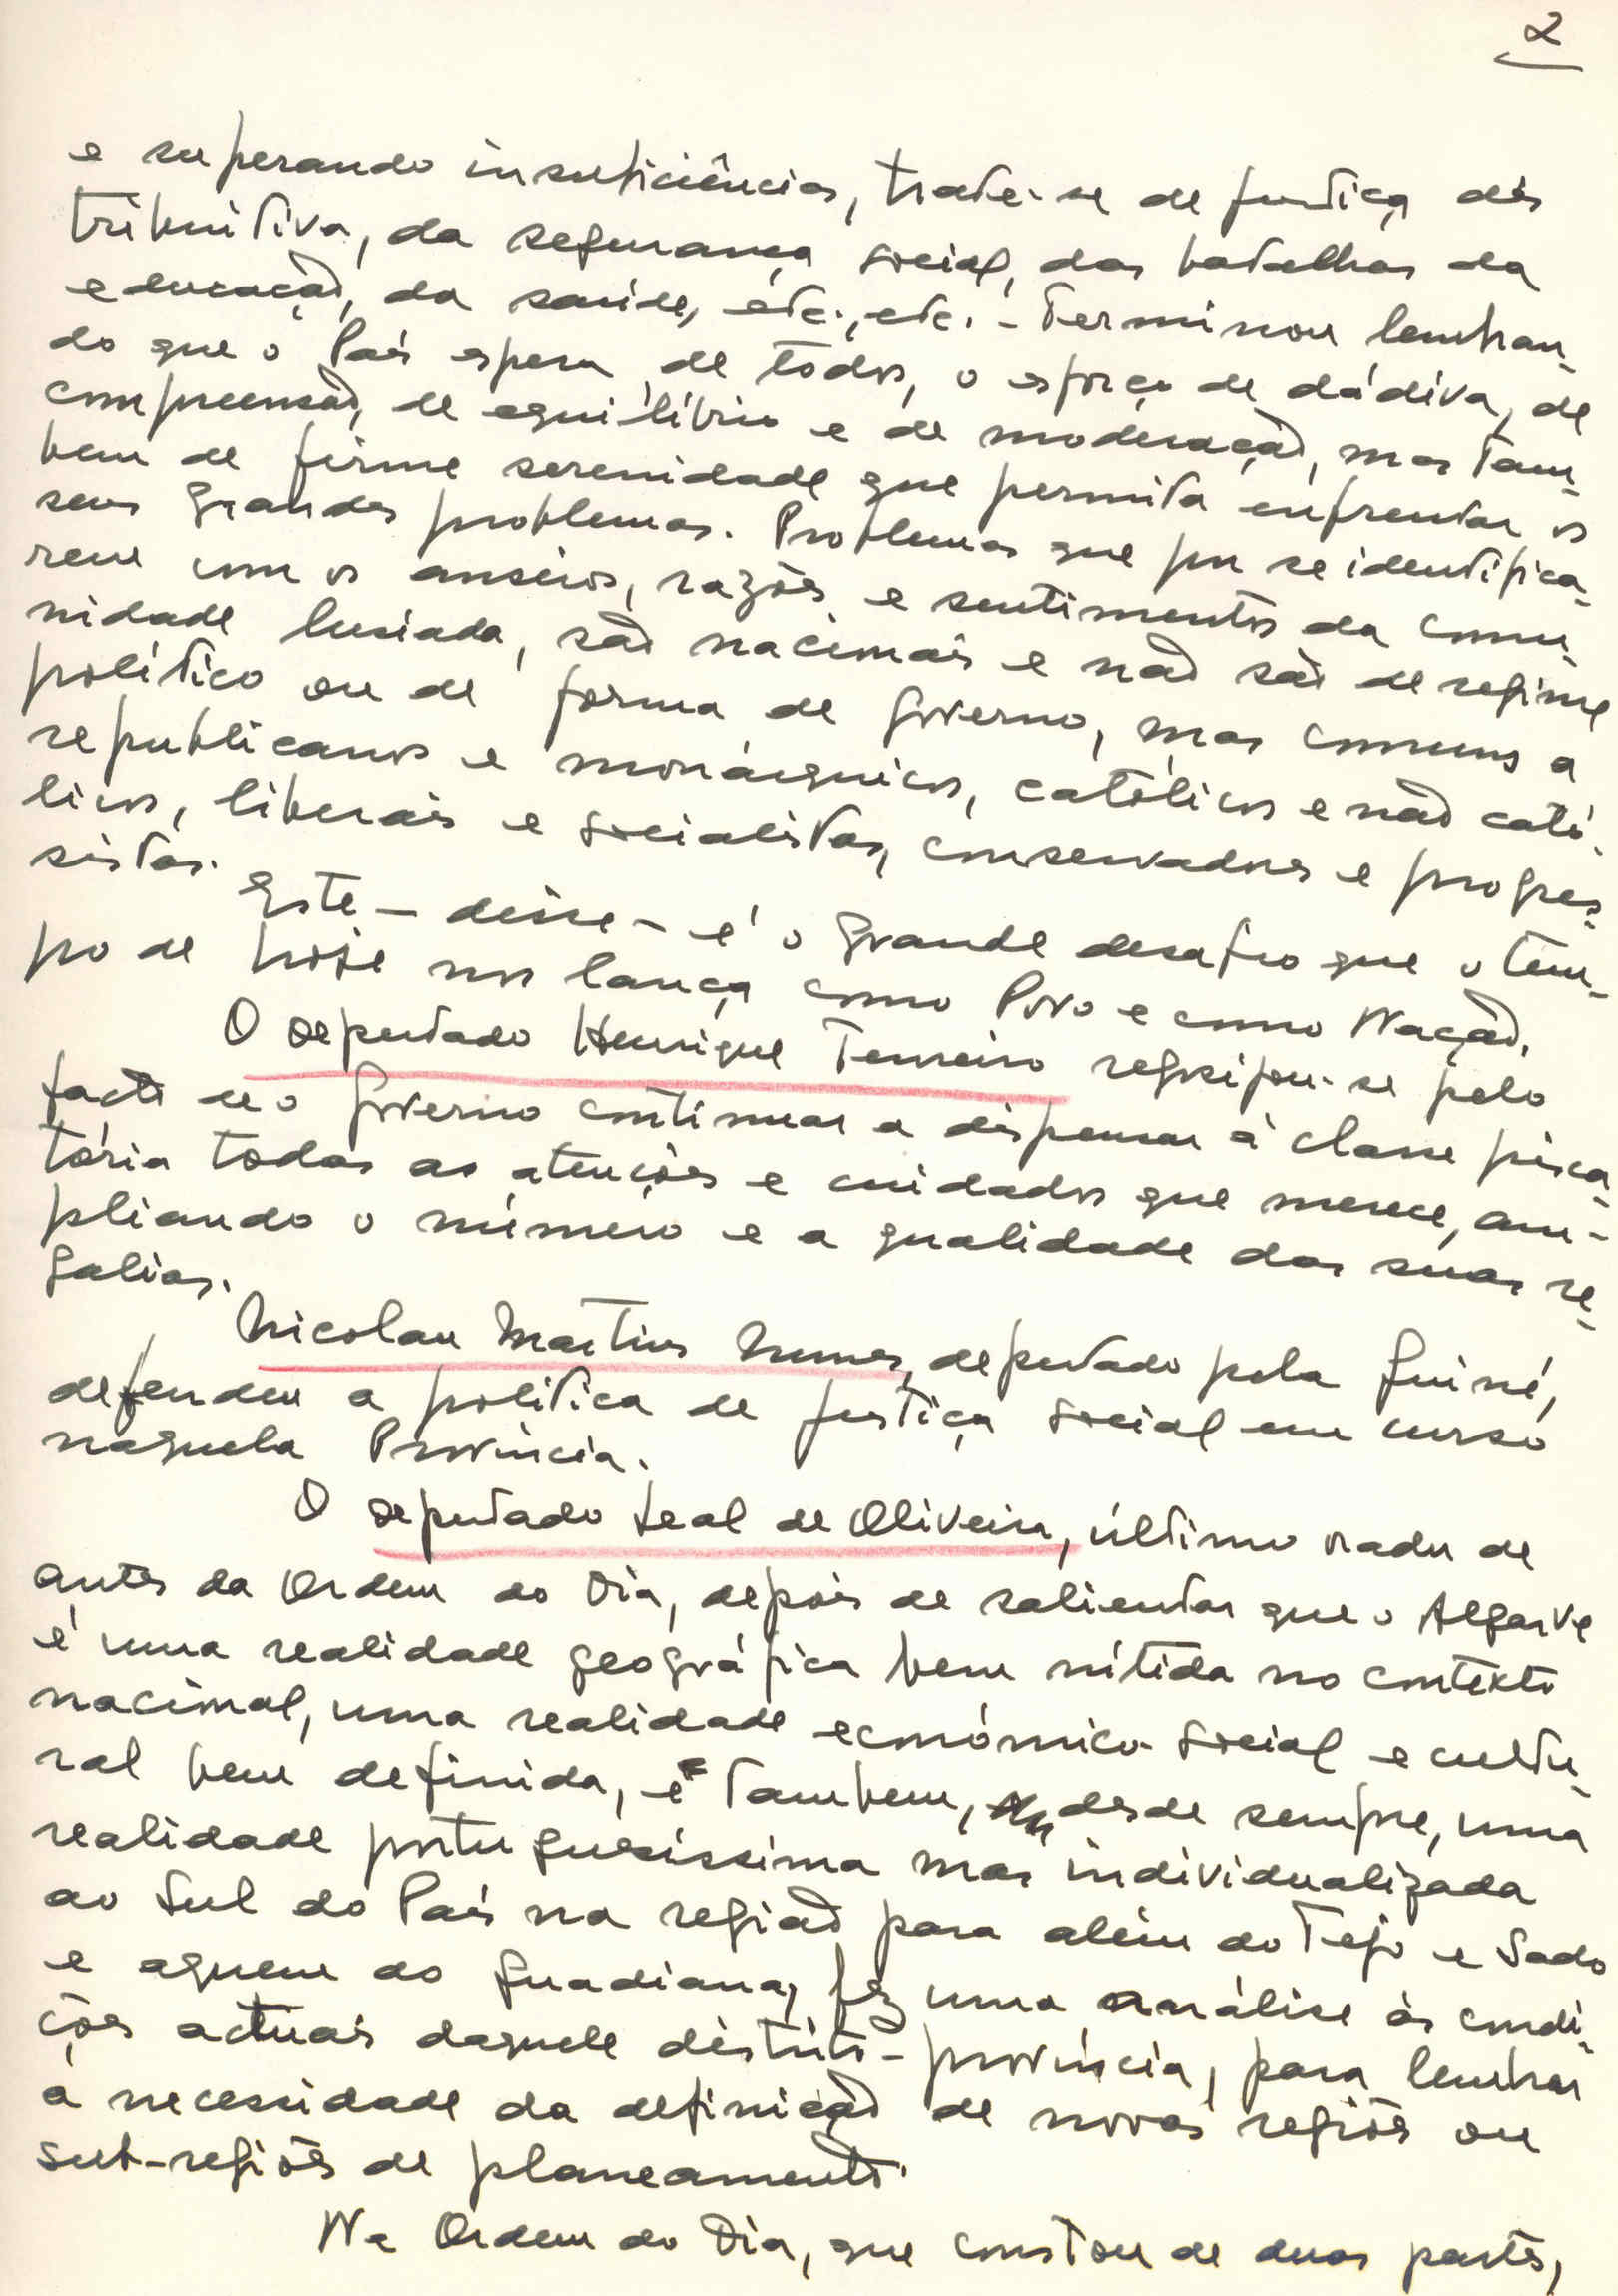 2
e superando insuficiências, trate-se de justiça dis
tributiva, da segurança social, das batalhas da
educação, da saúde, etc., etc. - Terminou lembran-
do que o País espera de todos, o esforço de dádiva, de
compreensão, de equilíbrio e de moderação, mas tam-
bem de firme serenidade que permita enfrentar os
seus grandes problemas. Problemas que por se identifica-
rem com os anseios, razões e sentimentos da comu-
nidade lusíada, são nacionais e não são de regime
político ou de forma de governo, mas comuns a
republicanos e monárquicos, católicos e não cató-
licos, liberais e socialistas, conservadores e progres-
sistas.
Este - disse - é o grande desafio que o tem-
po de hoje nos lança como Povo e como Nação.
O deputado Henrique Tenreiro regosijou-se pelo
facto de o Governo continuar a dispensar à classe pisca-
tória todas as atenções e cuidados que merece, am-
pliando o número e a qualidade das suas re-
galias.
Nicolau Martins Nunes, deputado pela Guiné,
defendeu a política de justiça social em curso
naquela Província.
O deputado Leal de Oliveira, último orador de
antes da Ordem do Dia, depois de salientar que o Algarve
é uma realidade geográfica bem nítida no contexto
nacional, uma realidade económico-social e cultu-
ral bem definida, e tambem, desde sempre, uma
realidade portuguesíssima mas individualizada
ao Sul do País na região para além do Tejo e Sado
e aquem do Guadiana, fez uma análise às condi-
ções actuais daquele distrito-província, para lembrar
a necessidade da definição de novas regiões ou
sub-regiões de planeamento.
Na Ordem do Dia, que constou de duas partes,